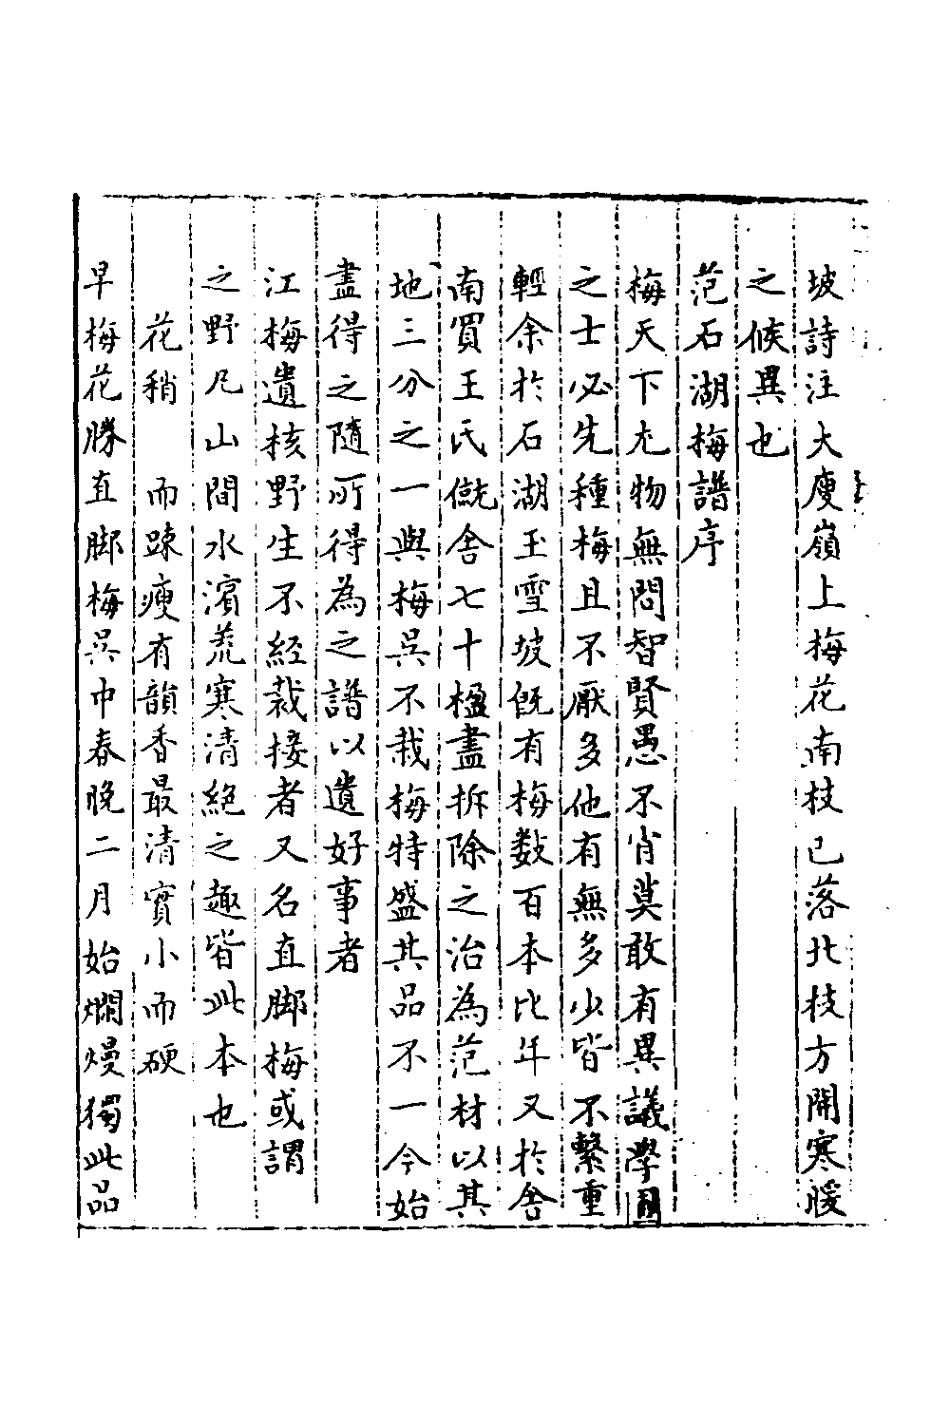 坡詩注大庾嶺上梅花南枝已落北枝方開寒暖
之候異也
范石湖梅譜序
梅天下尤物無問智賢愚不肖莫敢有異議學圃
之士必先種梅且不厭多他有無多少皆不繫重
輕余於石湖玉雪坡既有梅數百本比年又於舍
南買王氏僦舍七十楹盡拆除之治為范村以其
地三分之一與梅吳下栽梅特盛其品不一今始
盡得之隨所得為之譜以遺好事者
江梅遺核野生不經栽接者又名直脚梅或謂
之野凡山間水濱荒寒清絕之趣皆此本也
花稍　而踈瘦有韻香最清實小而硬
早梅花勝直脚梅吳中春晚二月始爛熳獨此品